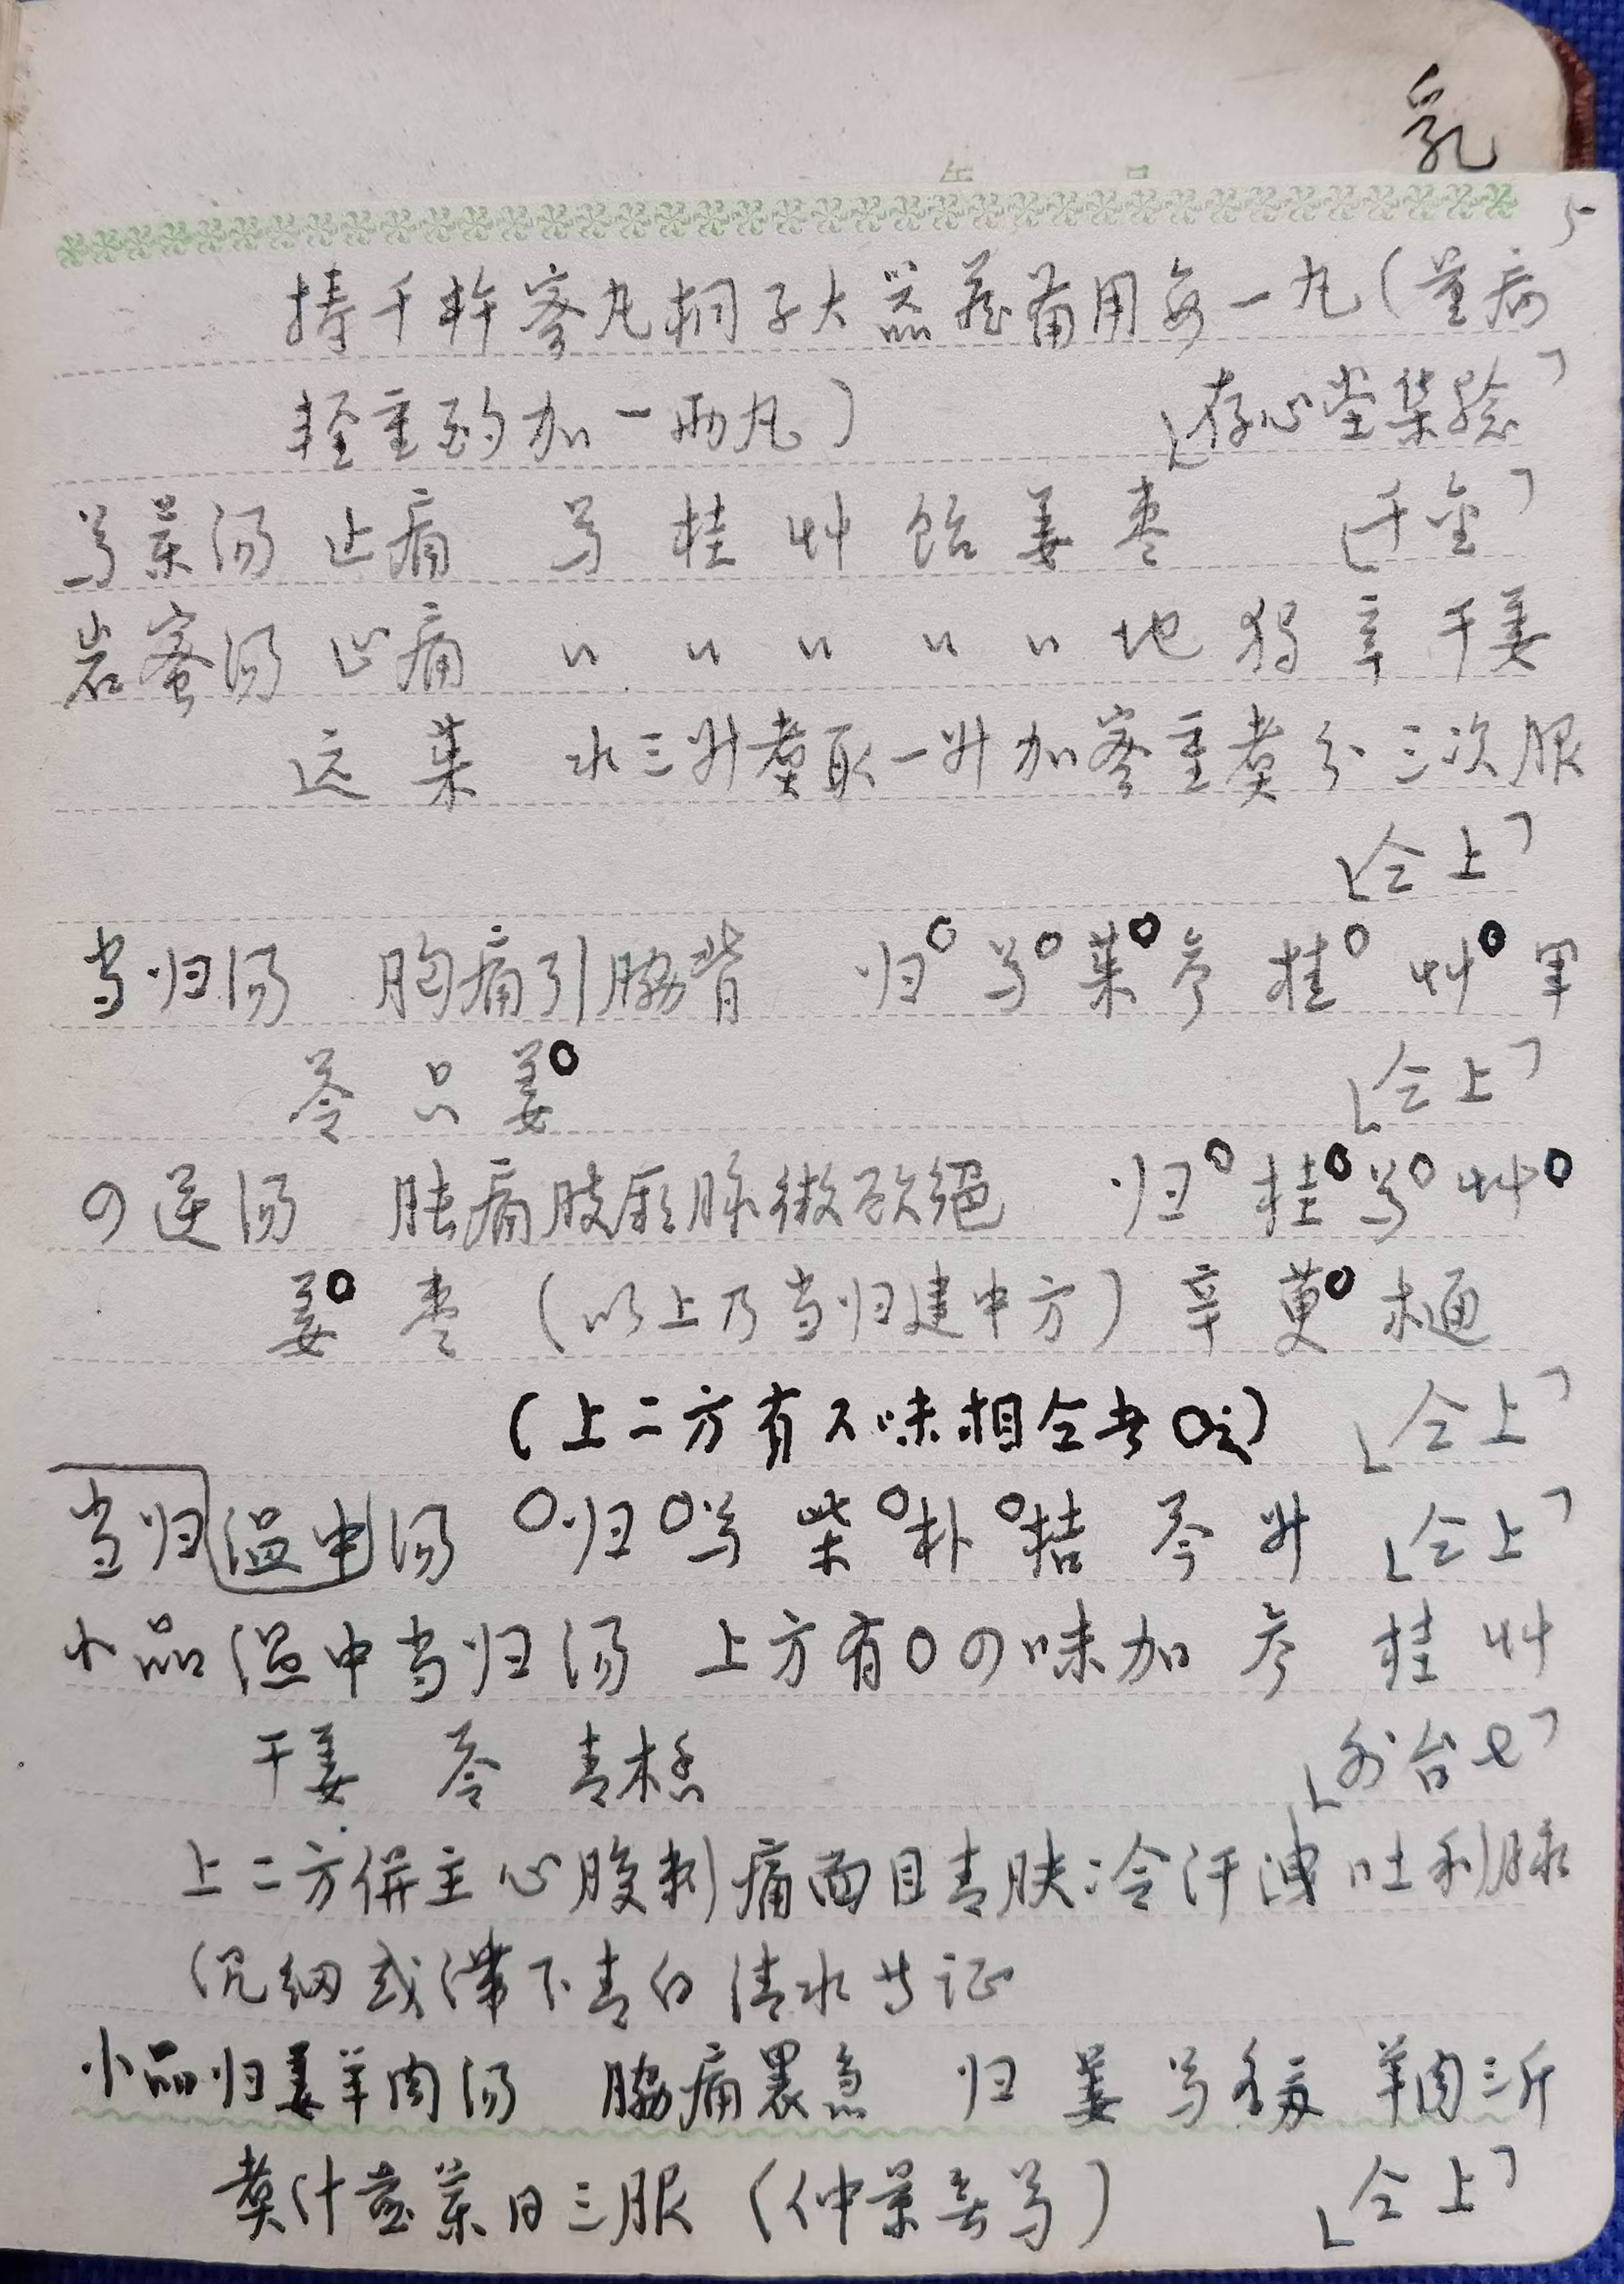 乳
5
捣千杵蜜丸桐子大器藏备用每一丸(量病
轻重酌加一两丸) 「存心堂集验」
芍药汤 止痛 芍 桂 艸 饴 姜 枣 「千金」
岩蜜汤 止痛 〃 〃 〃 〃 〃 地 独 辛 干姜
远 萸 水三升煮取一升加蜜重煮分三次服
「仝上」
当归汤 胸痛引胁背 归○ 芍○ 萸○ 参 桂○ 艸○ 军
苓 只 姜○
「仝上」
の逆汤 胀痛肢厥脉微欲絕 归○ 桂○ 芍○ 艸○
姜○ 枣 (以上乃当归建中方) 辛 萸○ 木通
(上二方有六味相仝者○之) 「仝上」
当归温中汤 ○归 ○芍 柴 ○朴 ○桔 苓 升 「仝上」
小品温中当归汤 上方有○の味加 参 桂 艸
干姜 苓 青木香 「外台七」
上二方併主心腹刺痛面目青肤冷汗洩吐利脉
沉细或滞下青白清水等证
小品归姜羊肉汤 胁痛裏急 归 姜 芍各 羊肉三斤
煮汁煮药日三服 (仲景无芍) 「仝上」